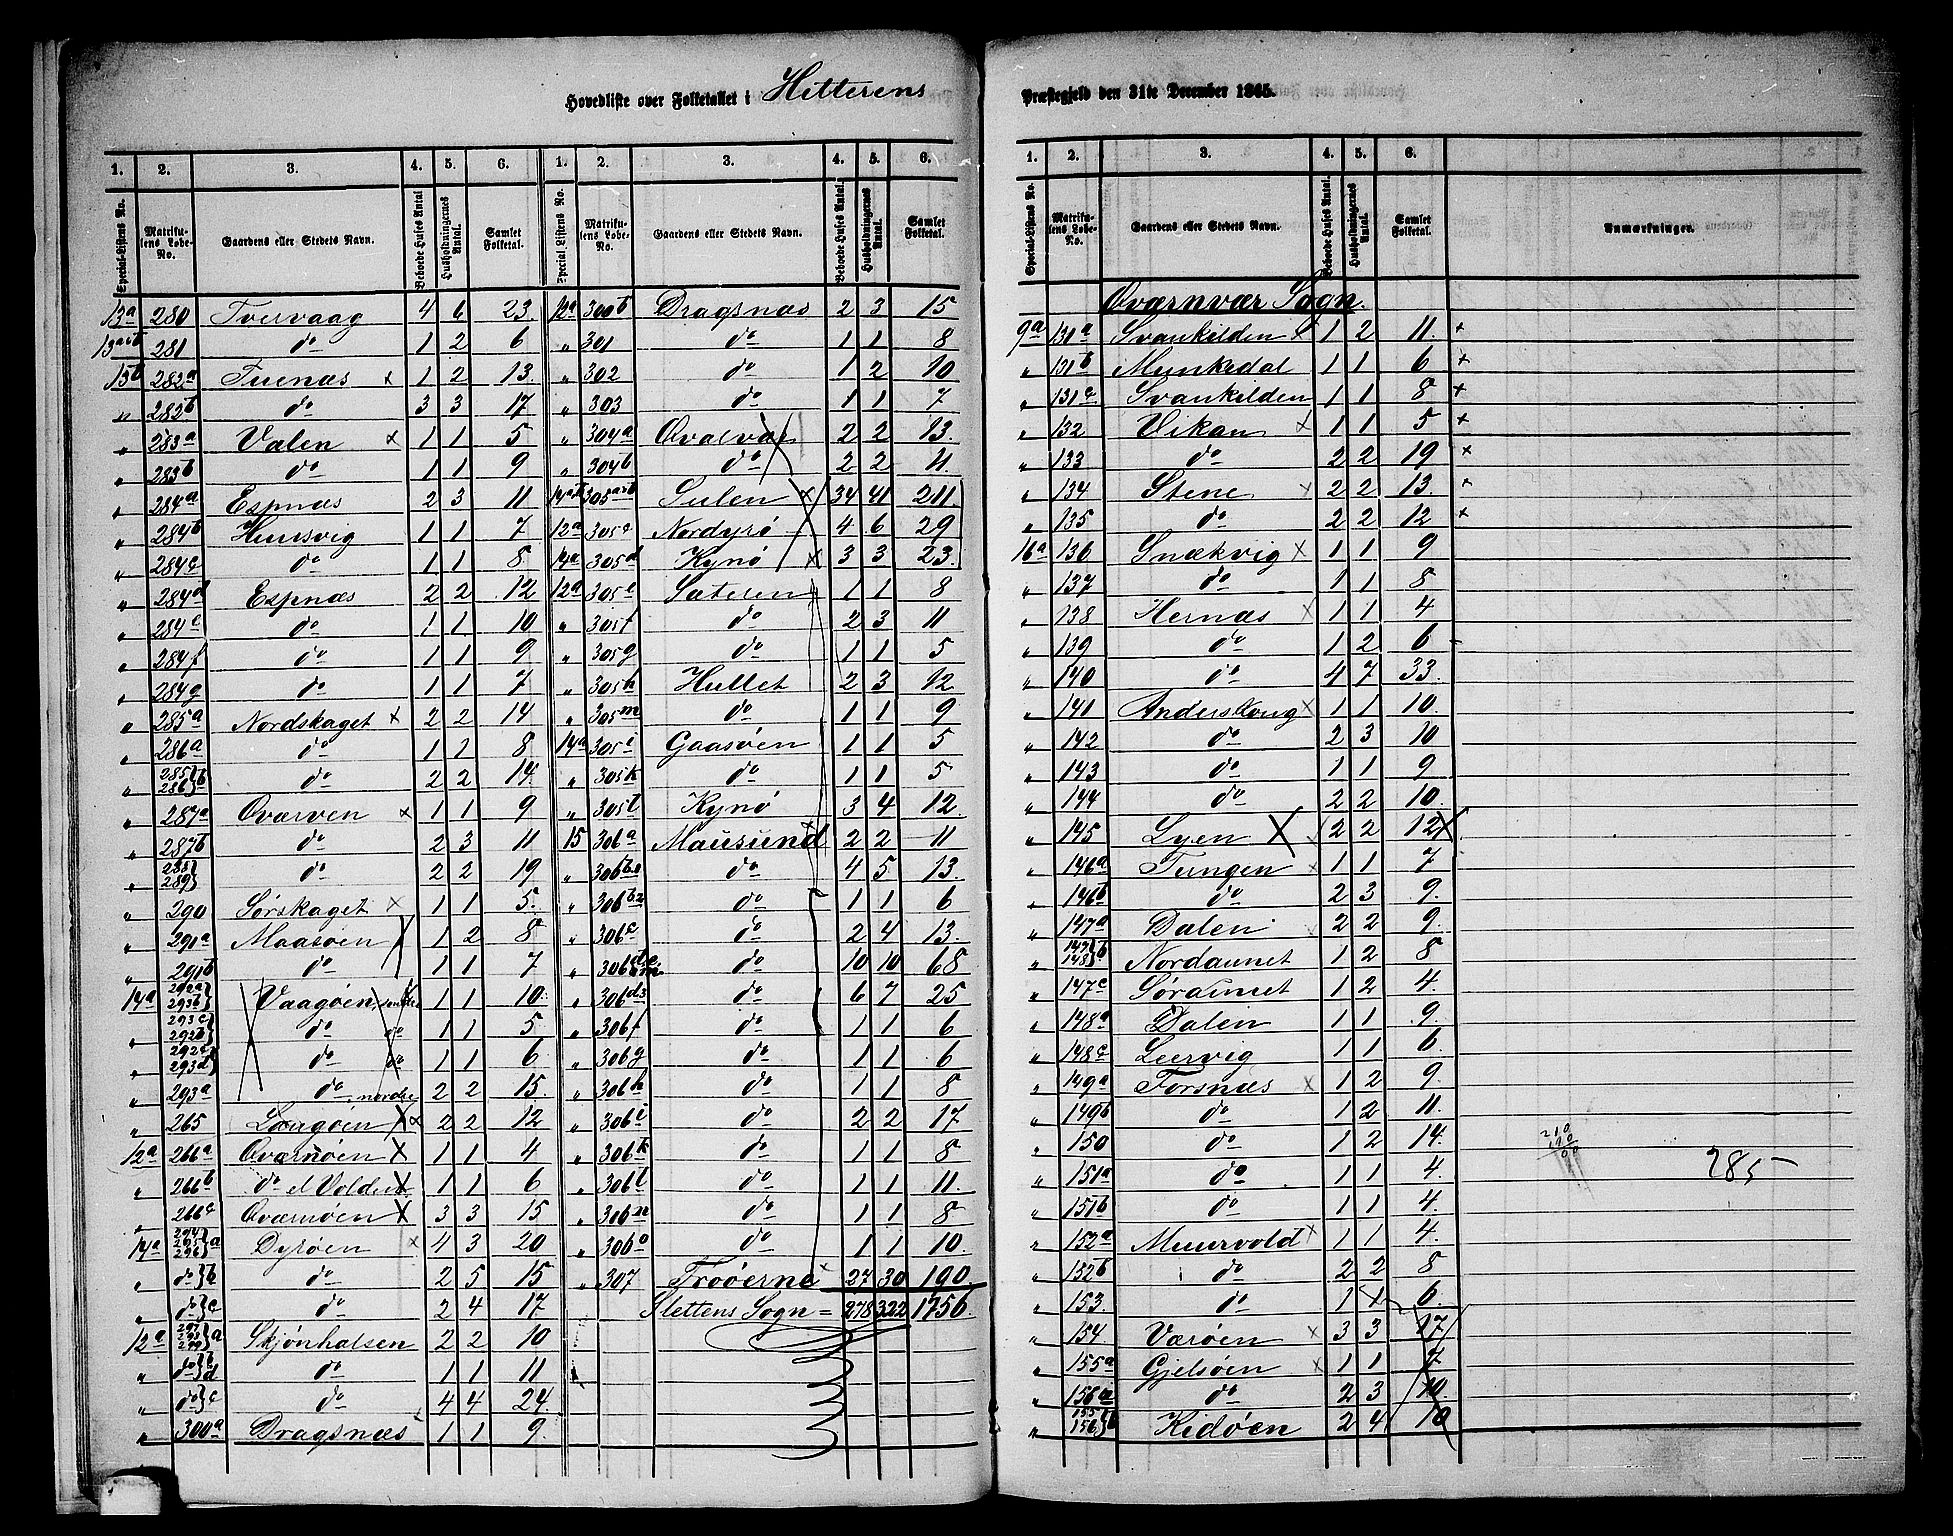 Hovedliste over Folketallet i Hitterens
Præstegjeld den 31te December 1865.
1. 2. 3. 4. 5. 6. 1. 2. 3. 4. 5. 6.
Special-Listens No. Matrikulens Løbe-No. Gaardens eller Stedets Navn. Beboede Huses Antal Husholdningernes Antal. Samlet Folketal. Special Listens No. Matrikulens Løbe-No. Gaardens eller Stedets Navn. Beboede Huses Antal. Husholdningernes Antal. Samlet Folketal.
13a 280 Tvervaag 4 6 23. 12a 300b Dragsnæs 2 3 15
13a&b 281 do 1 2 6 " 301 do 1 1 8
13b 282a Tuenæs x 1 2 13. " 302 do 1 2 10
" 282b do 3 3 17 " 303 do 1 1 7
" 283a Valen x 1 1 5 " 304a Qvalvær 2 2 13.
" 283b do 1 1 9 " 304b do 2 2 11.
" 284a Espnæs 2 3 11 14a&b 305a&b Sulen x 34 41 211.
" 284b Hunsvig 1 1 7 12a 305c Nordyrø 4 6 29
" 284c do 1 1 8 14a 305d Kynø x 3 3 23.
" 284d Espnæs 2 2 12 12a 305e Sateren 1 1 8
" 284e do 1 1 10 " 305f do 2 3 11
" 284f do 1 1 9 " 305g do 1 1 5
" 284g do 1 1 7 " 305h Hullet 2 3 12
" 285a Nordskaget x 2 2 14 " 305m do 1 1 9
" 286a do 1 1 8 14a 305i Gaasøen 1 1 5
" 285 286}b do 2 2 14. " 305k do 1 1 5
" 287a Qværven x 1 1 9 " 305l Kynø 3 4 12.
" 287b do 2 3 11 15 306a Mausund 2 2 11
" 288 289} do 2 2 19 " 306b1 do 4 5 13.
" 290 Sørskaget x 1 1 5. " 306b2 do 1 1 6
" 291a Maasøen 1 2 8 " 306c do 2 4 13.
" 291b do 1 1 7 " 306 do 10 10 68
14a 292a 293b} Vaagøen, søndre 1 1 10. " 306d3 do 6 7 25
" 293c 292b} do do 1 1 5 " 306f do 1 1 6
" 292c 293d} do do 1 1 6 " 306g do 1 1 6
" 293a do nordre 2 2 15. " 306h do 1 1 8
" 265 Langøen x 2 2 12 " 306i do 2 2 17
12a 266a Qværnøen x 1 1 4 " 306k do 1 1 8
" 266b do el Volden 1 1 6 " 306l do 1 1 11.
" 266c Qværnøen x 3 3 15 " 306n do 1 1 8
14a 294 295 296}a Dyrøen x 4 3 20 " 306o do 1 1 10.
" do}b do 2 5 15 " 307 Frøøerne x 27 30 190.
" do}c do 2 4 17 Slettens Sogn = 278 322 1756.
12a 297 298 299}a Skjønhalsen 2 2 10
" do}b d do 1 1 11
" do}c do 4 4 24.
" 300a Dragsnæs 1 1 9.
1. 2. 3. 4. 5. 6.
Special-Listens No. Matrikulens Løbe-No. Gaardens eller Stedets Navn. Beboede Huses Antal. Husholdningernes Antal. Samlet Folketal. Anmærkninger.
Qværnvær Sogn.
9a 131a Svankilden x 1 2 11. x
" 131b Munkedal 1 1 6 x
" 131c Svankilden 1 1 8 x
" 132 Vikan x 1 1 5 x
" 133 do 2 2 19 x
" 134 Stene x 2 2 13. x
" 135 do 2 2 12 x
16a 136 Snækvig x 1 1 9
" 137 do 1 1 8
" 138 Hernæs x 1 1 4
" 139 do 1 2 6
" 140 do 4 7 33.
" 141 Anderskong x 1 1 10.
" 142 do 2 3 10
" 143 do 1 1 9
" 144 do 2 2 10.
" 145 Lyen X 2 2 12
" 146a Tungen x 1 1 7
" 146b do 2 3 9.
" 147a Dalen 2 2 9.
" 147 148}b Nordaunet 1 2 8
" 147c Søraunet 1 2 4.
" 148a Dalen 1 1 9.
" 148c Leervig 1 1 6.
" 149a Forsnæs x 1 2 9.
" 149b do 1 2 11.
" 150 do 1 2 14.
" 151a do 1 1 4.
285
" 151b do 1 1 4.
" 152a Muurvold x 1 1 4.
" 152b do 2 2 8
" 153. do 1 1 6.
" 154. Værøen x 3 3 17
" 155a Gjelsøen x 1 1 7
" 156a do 2 3 10.
" 155 156}b Kidøen 2 4 10